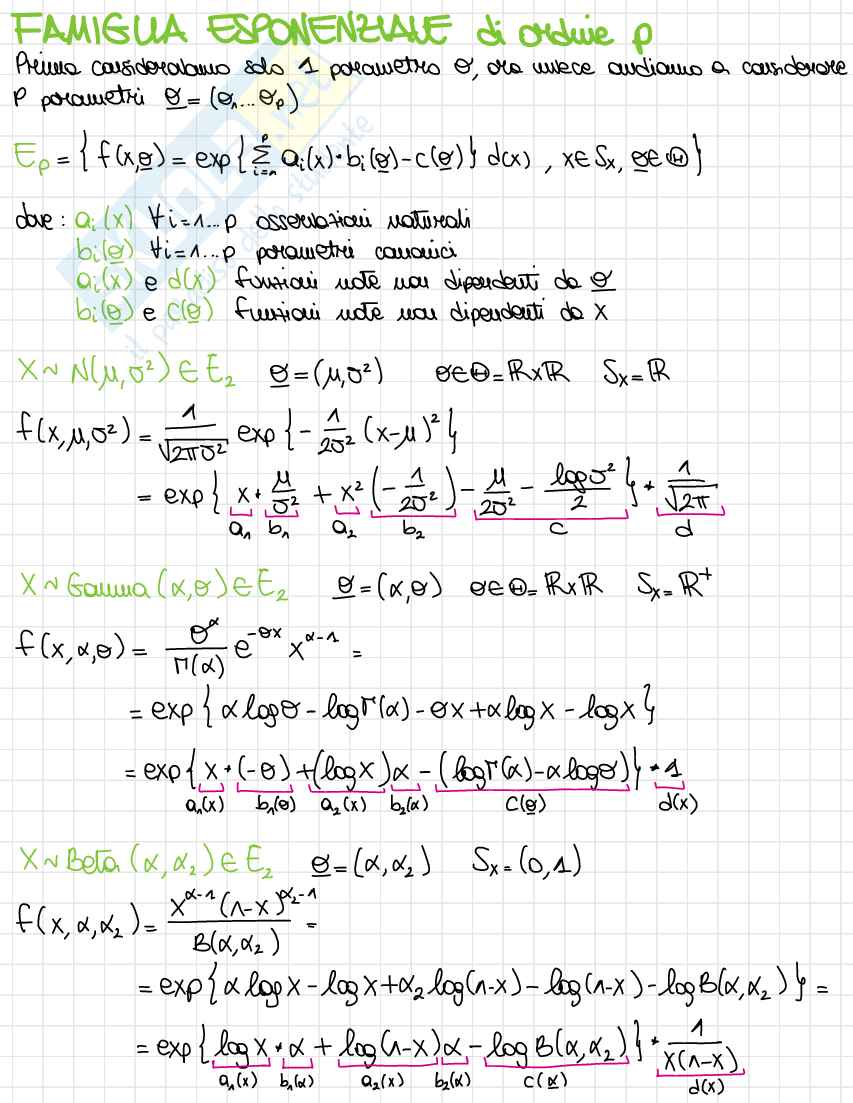 FAMIGLIA ESPONENZIALE di ordine p
Prima consideravamo solo 1 parametro θ, ora invece andiamo a considerare
P parametri θ = (θ₁...θₚ)
Eₚ = { f(x,θ) = exp{ Σᵢ₌₁ᵖ aᵢ(x)·bᵢ(θ) - c(θ)} d(x) , x∈Sₓ, θ∈Θ }
dove: aᵢ(x) ∀i=1...p osservazioni naturali
bᵢ(θ) ∀i=1...p parametri canonici
aᵢ(x) e d(x) funzioni note non dipendenti da θ
bᵢ(θ) e c(θ) funzioni note non dipendenti da x
X ~ N(μ,σ²) ∈ E₂ θ = (μ,σ²) θ∈Θ = ℝxℝ Sₓ = ℝ
f(x,μ,σ²) = 1/√2πσ² exp{ - 1/2σ² (x-μ)² }
= exp{ x · μ/σ² + x² (- 1/2σ²) - μ/2σ² - logσ²/2 } · 1/√2π
a₁ b₁ a₂ b₂ c d
X ~ Gamma (α,θ) ∈ E₂ θ = (α,θ) θ∈Θ = ℝxℝ Sₓ = ℝ⁺
f(x,α,θ) = θ^α/Γ(α) e^-θx x^α-1 =
= exp{ α logθ - logΓ(α) - θx + α logx - logx }
= exp{ x · (-θ) + (logx) α - (logΓ(α) - α logθ)} · 1
a₁(x) b₁(θ) a₂(x) b₂(α) c(θ) d(x)
X ~ Beta (α,α₂) ∈ E₂ θ = (α,α₂) Sₓ = (0,1)
f(x,α,α₂) = x^α-1 (1-x)^α₂-1 / B(α,α₂) =
= exp{ α logx - logx + α₂ log(1-x) - log(1-x) - logB(α,α₂) } =
= exp{ logx · α + log(1-x) α - logB(α,α₂) } · 1/x(1-x)
a₁(x) b₁(α) a₂(x) b₂(α) c(α) d(x)